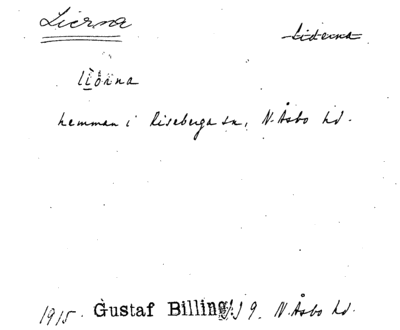 Lierna Liderna
lìönna
hemman i Riseberga sn, N. Åsbo hd.
1915. Gustaf Billing s. 9. N. Åsbo hd.